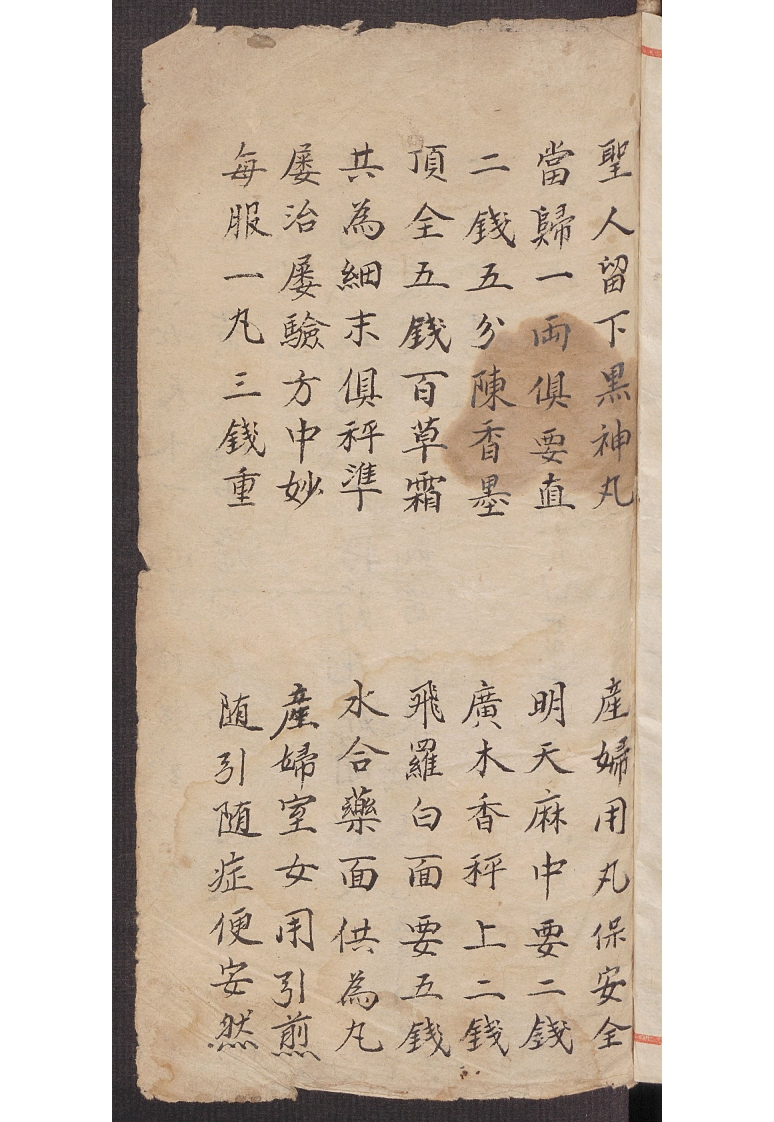 聖人留下黒神丸 產婦用丸保安全
當歸一両俱要直 明天麻中要二錢
二錢五分陳香墨 廣木香秤上二錢
頂全五錢百草霜 飛羅白面要五錢
共為細末俱秤準 水合藥面供為丸
屡治屡驗方中妙 產婦室女用引煎
每服一丸三錢重 随引随症便安然